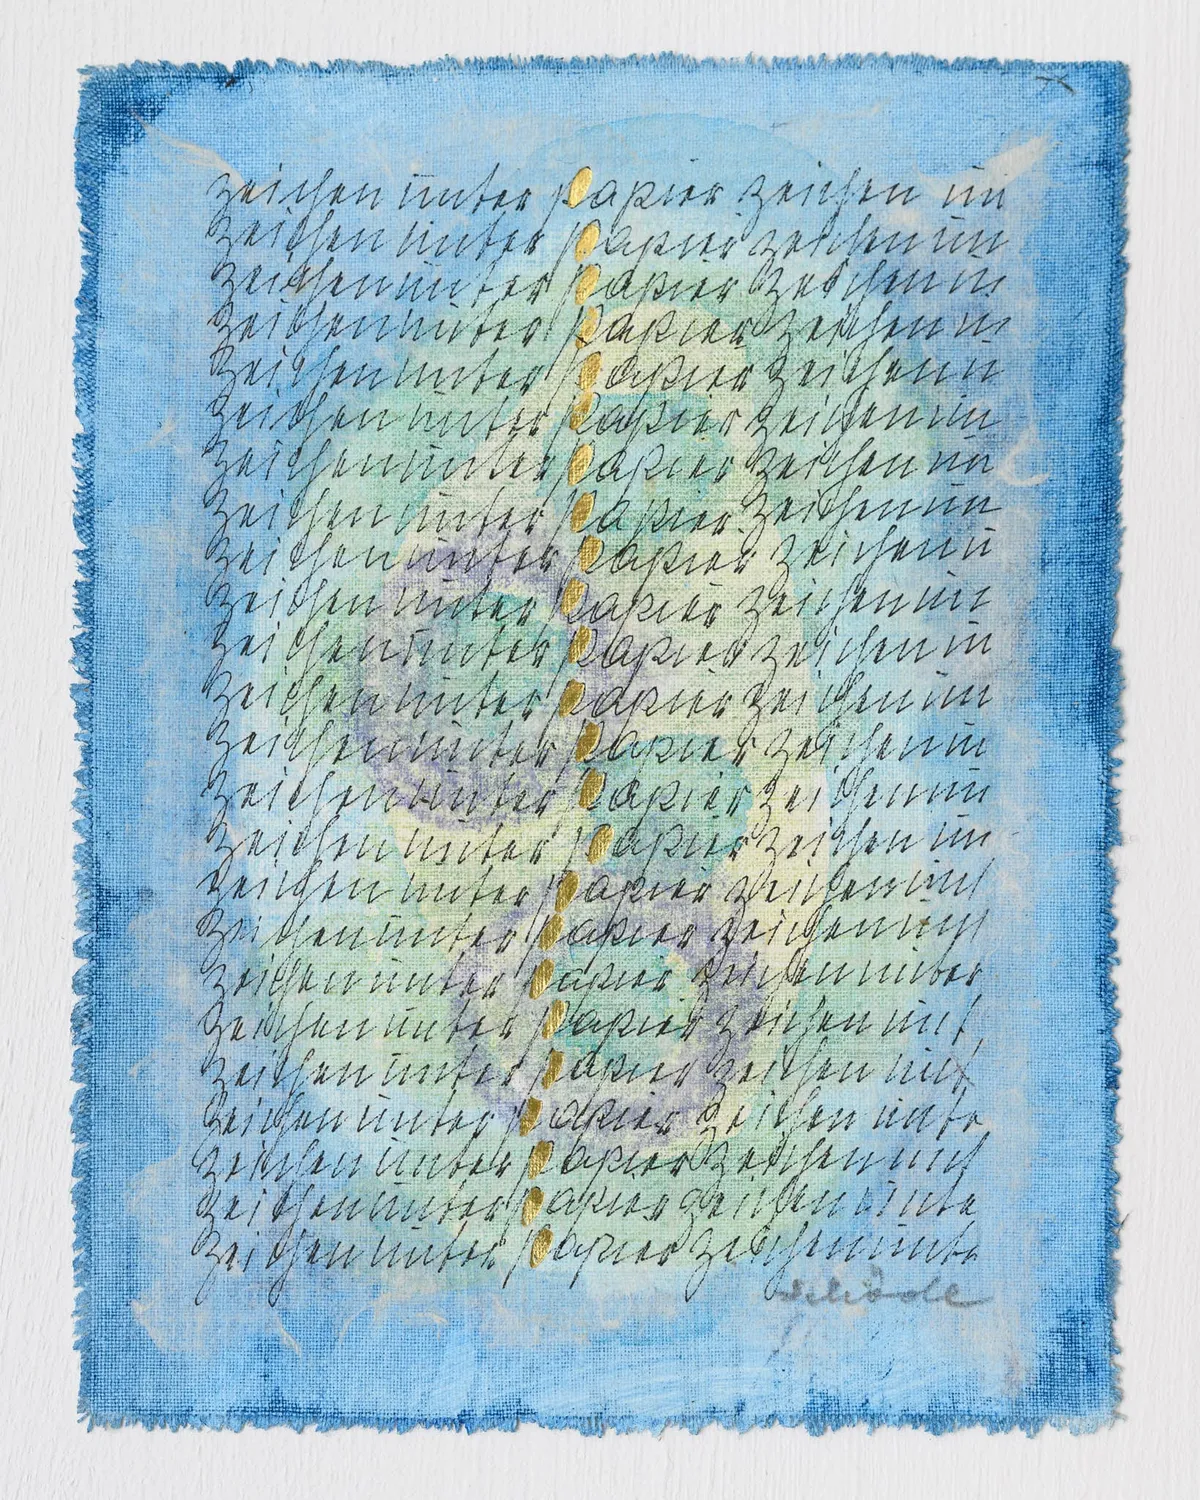 zeichen unter papier zeichen un
zeichen unter papier zeichen un
zeichen unter papier zeichen un
zeichen unter papier zeichen un
zeichen unter papier zeichen un
zeichen unter papier zeichen un
zeichen unter papier zeichen un
zeichen unter papier zeichen un
zeichen unter papier zeichen un
zeichen unter papier zeichen un
zeichen unter papier zeichen un
zeichen unter papier zeichen un
zeichen unter papier zeichen un
zeichen unter papier zeichen un
zeichen unter papier zeichen un
zeichen unter papier zeichen unt
zeichen unter papier zeichen unt
zeichen unter papier zeichen unter
zeichen unter papier zeichen unt
zeichen unter papier zeichen unt
zeichen unter papier zeichen unte
zeichen unter papier zeichen unt
zeichen unter papier zeichen unte
zeichen unter papier zeichen unte